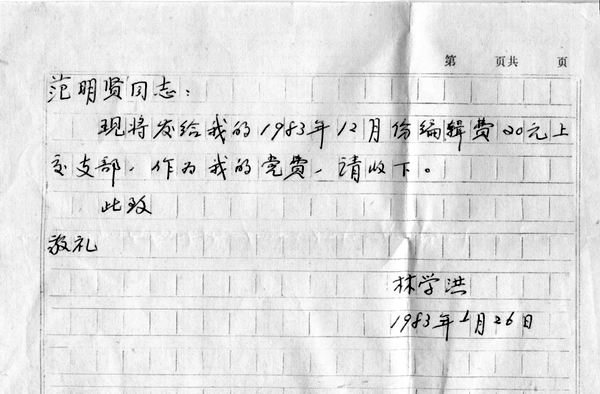 第 页共 页
范明贤同志：
现将发给我的1983年12月份编辑费20元上
交支部，作为我的党费，请收下。
此致
敬礼
林学洪
1983年1月26日